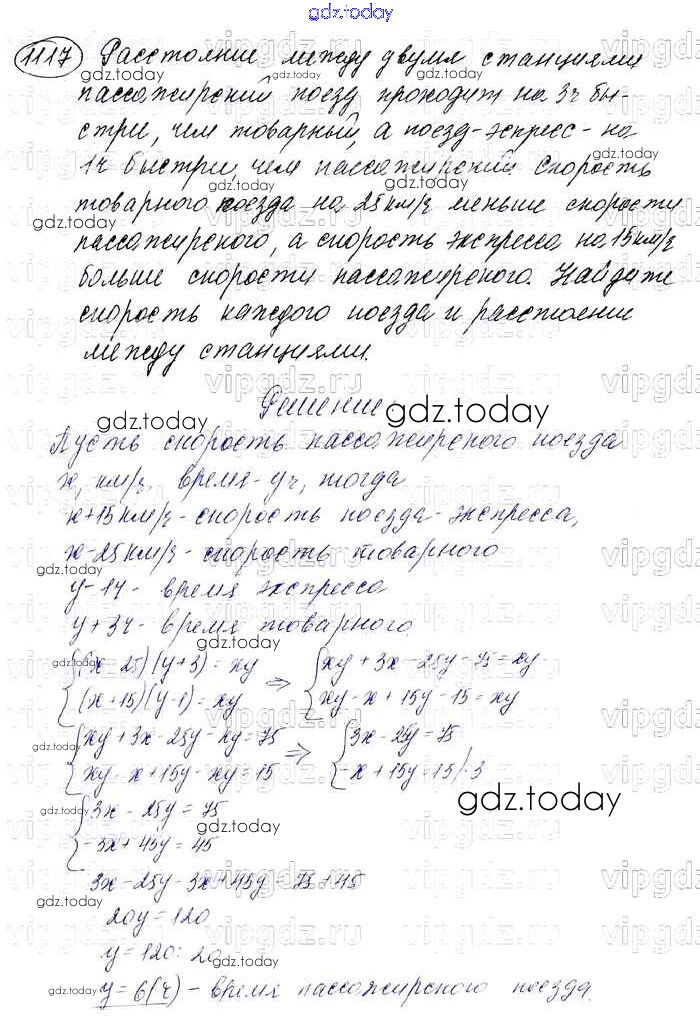 gdz.today
1117 Расстояние между двумя станциями
пассажирский поезд проходит на 3ч бы-
стрее, чем товарный, а поезд-экспресс - на
1ч быстрее, чем пассажирский. Скорость
товарного поезда на 25 км/ч меньше скорости
пассажирского, а скорость экспресса на 15 км/ч
больше скорости пассажирского. Найдите
скорость каждого поезда и расстояние
между станциями.
Решение:
Пусть скорость пассажирского поезда
x, км/ч, время - yч, тогда
x+15 км/ч - скорость поезда-экспресса,
x-25 км/ч - скорость товарного
y-1ч - время экспресса
y+3ч - время товарного.
{(x-25)(y+3)=xy ⇒ {xy+3x-25y-75=xy
{(x+15)(y-1)=xy {xy-x+15y-15=xy
{xy+3x-25y-xy=75 ⇒ {3x-25y=75
{xy-x+15y-xy=15 {-x+15y=15 |·3
{3x-25y=75
{-3x+45y=45
3x-25y-3x+45y=75+45
20y=120
y=120:20
y=6(ч) - время пассажирского поезда.